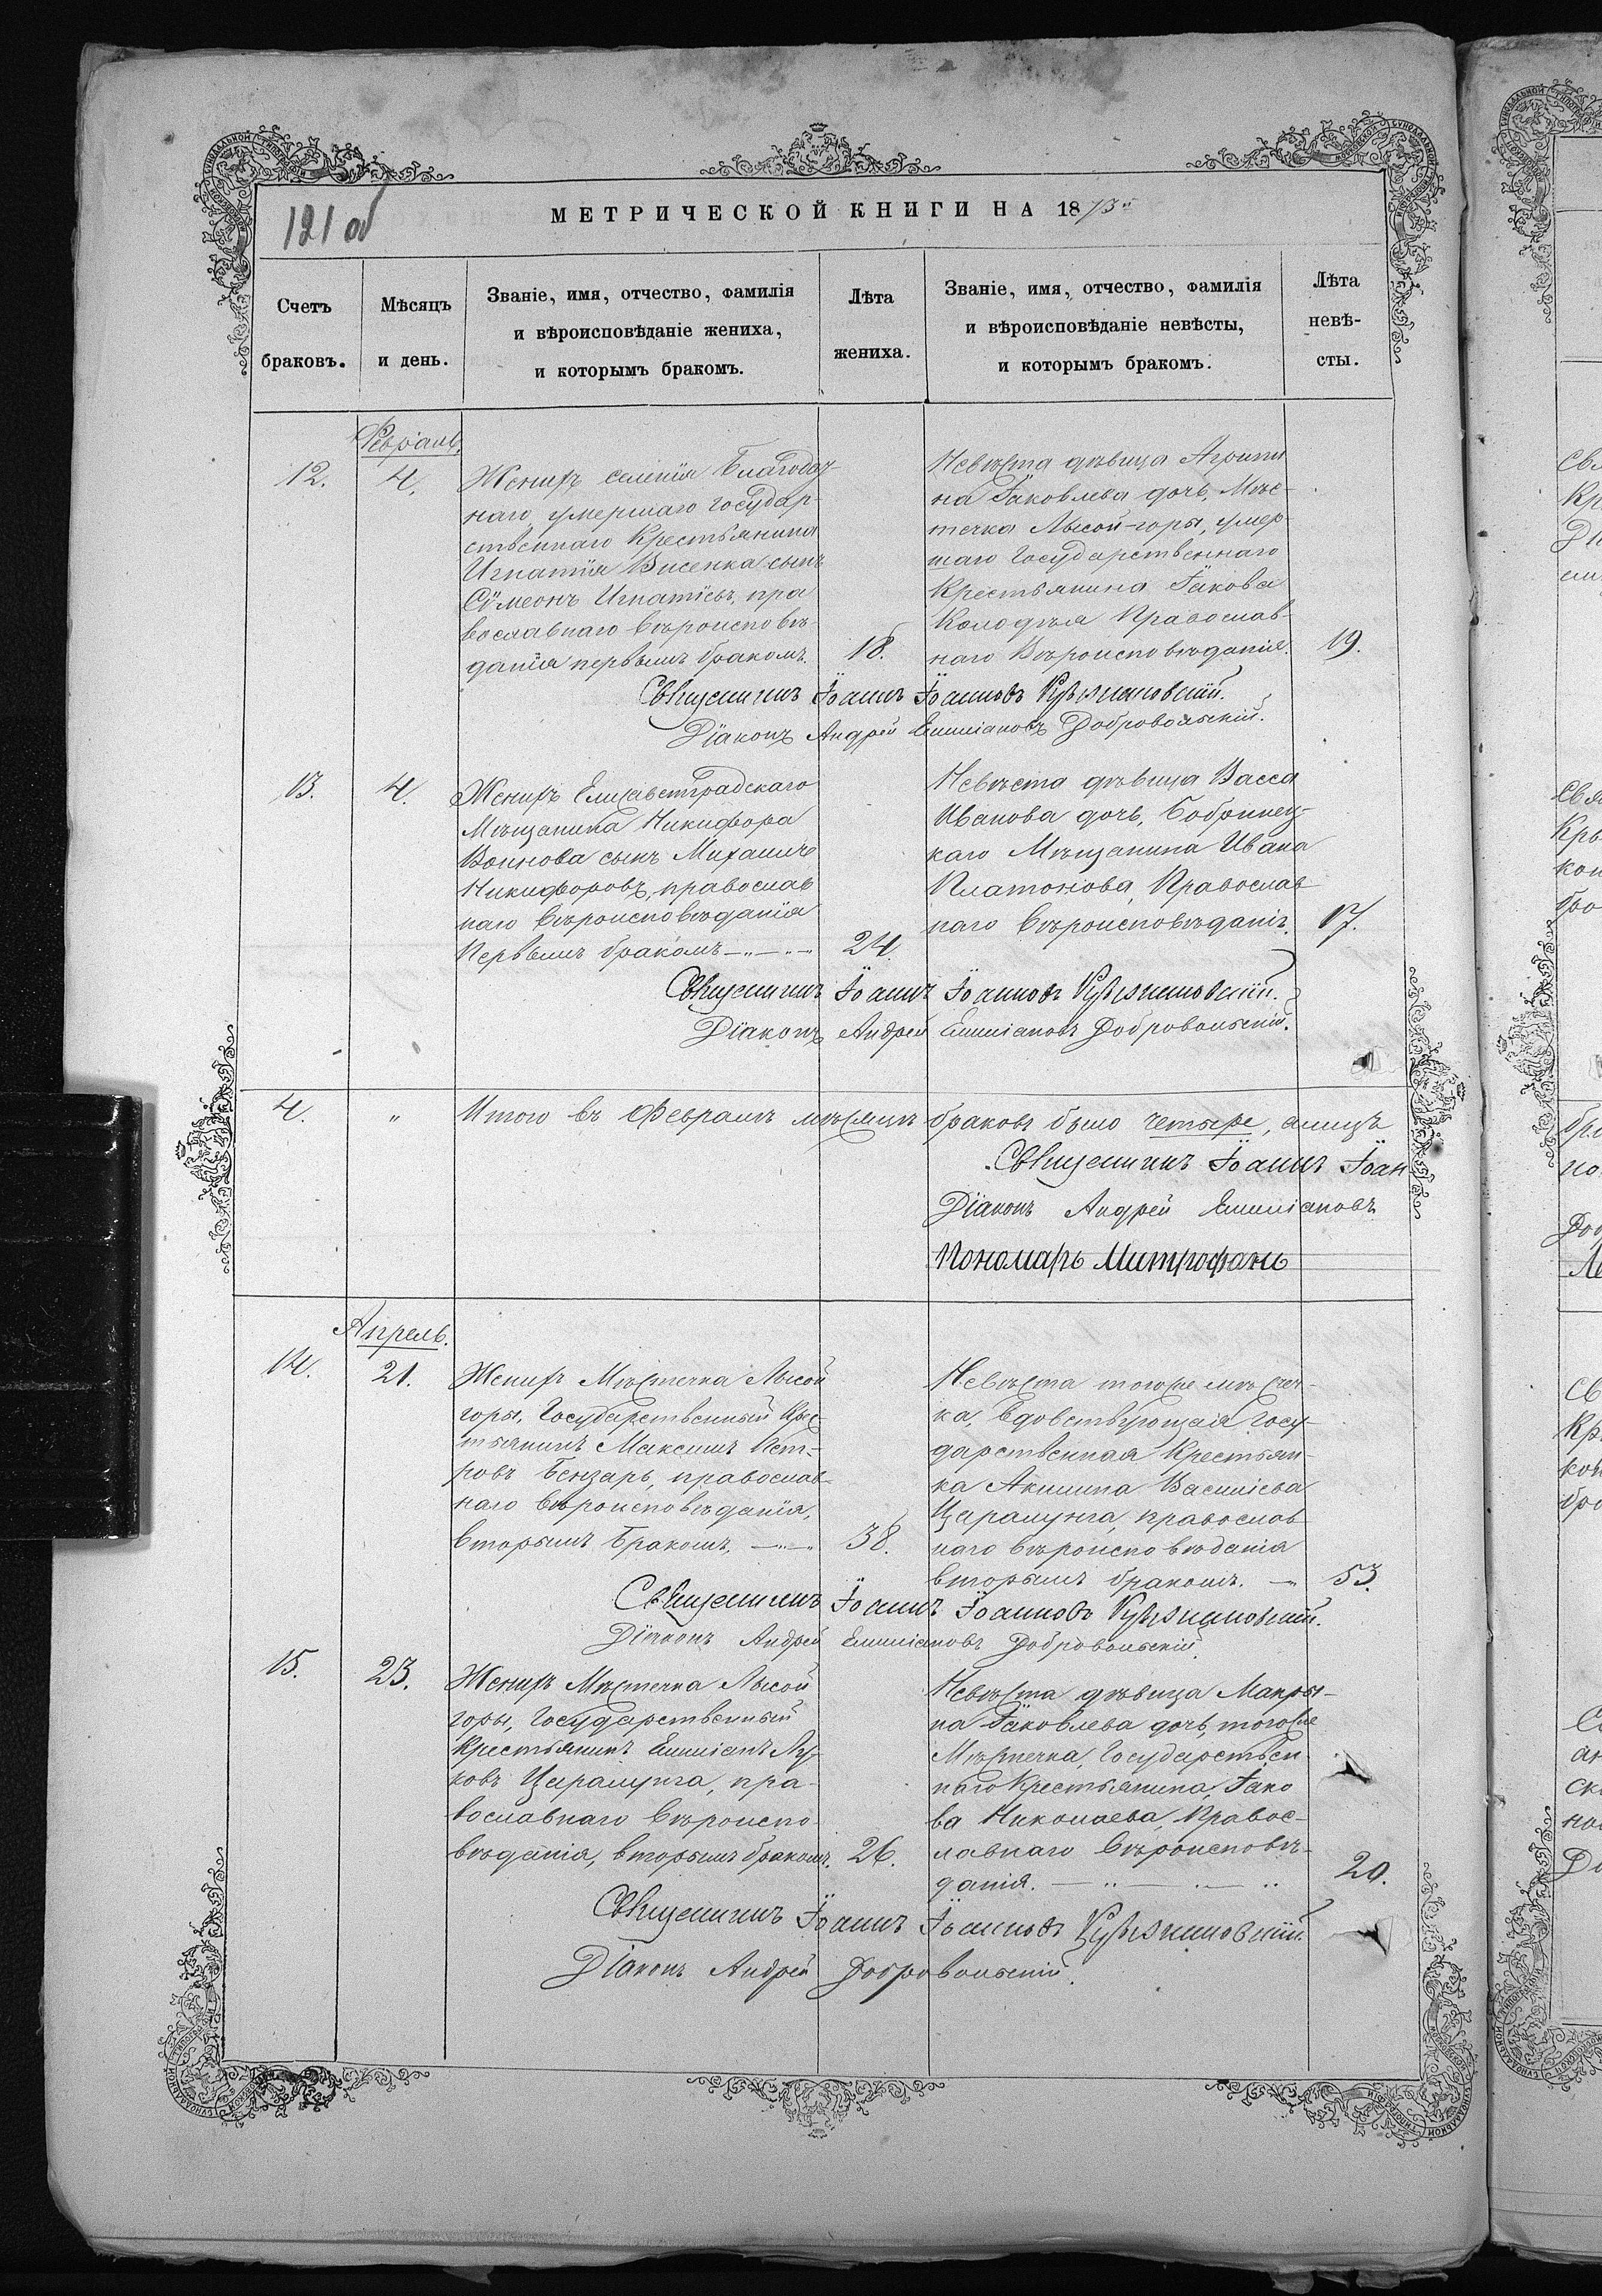 121 об
МЕТРИЧЕСКОЙ КНИГИ НА 1873
Счетъ браковъ.
Мѣсяцъ и день.
Званіе, имя, отчество, фамилія
и вѣроисповѣданіе жениха,
и которымъ бракомъ.
Лѣта жениха.
Званіе, имя, отчество, фамилія
и вѣроисповѣданіе невѣсты,
и которымъ бракомъ.
Лѣта невѣ-
сты.
Февраль.
12.
4.
Женихъ селенія Благодат-
наго умершаго Государ-
ственнаго Крестьянина
Игнатія Висенка сынъ
Сѵмеонъ Игнатіевъ, пра
вославнаго вѣроисповѣ-
данія первымъ бракомъ.
18.
Невѣста дѣвица Агрипи
на Іаковлева дочь, Мѣс-
течка Лысой-горы, умер-
шаго Государственнаго
Крестьянина Іакова
Колодѣя Православ-
наго Вѣроисповѣданія.
19.
Священникъ Іоаннъ Іоанновъ
Діаконъ Андрей Емиліановъ Добровольскій.
13.
4.
Женихъ Елисаветградскаго
Мѣщанина Никифора
Воинова сынъ Михаилъ
Никифоровъ, православ
наго вѣроисповѣданія
Первымъ бракомъ —„—„—
24.
Невѣста дѣвица Васса
Иванова дочь, Бобринец-
каго Мѣщанина Ивана
Платонова, Православ
наго вѣроисповѣданія.
17.
Священникъ Іоаннъ Іоанновъ
Діаконъ Андрей Емиліановъ Добровольскій.
4.
„
Итого въ Февралѣ мѣсяцѣ браковъ было четыре, а лицъ
Священникъ Іоаннъ Іоан
Діаконъ Андрей Емиліановъ
Пономарь Митрофанъ
Апрель.
14.
21.
Женихъ Мѣстечка Лысой
горы, Государственный Крес-
тьянинъ Максимъ Пет-
ровъ Бензарь, православ-
наго вѣроисповѣданія,
вторымъ бракомъ. —„—„
38.
Невѣста тогоже мѣстеч-
ка, Вдовствующая Госу-
дарственная Крестьян-
ка Акилина Василіева
Царалунга, православ
наго вѣроисповѣданія
вторымъ бракомъ. —„
53.
Священникъ Іоаннъ Іоанновъ
Діаконъ Андрей Емиліановъ Добровольскій.
15.
23.
Женихъ Мѣстечка Лысой
горы, Государственный
Крестьянинъ Емиліанъ Лу-
ковъ Царалунга, пра-
вославнаго вѣроиспо-
вѣданія, вторымъ бракомъ.
26.
Невѣста дѣвица Макры-
на Іаковлева дочь, тогоже
Мѣстечка, Государствен
наго Крестьянина, Іако
ва Николаева, Правос-
лавнаго вѣроисповѣ-
данія. — „ — „ — „
20.
Священникъ Іоаннъ Іоанновъ
Діаконъ Андрей Добровольскій.